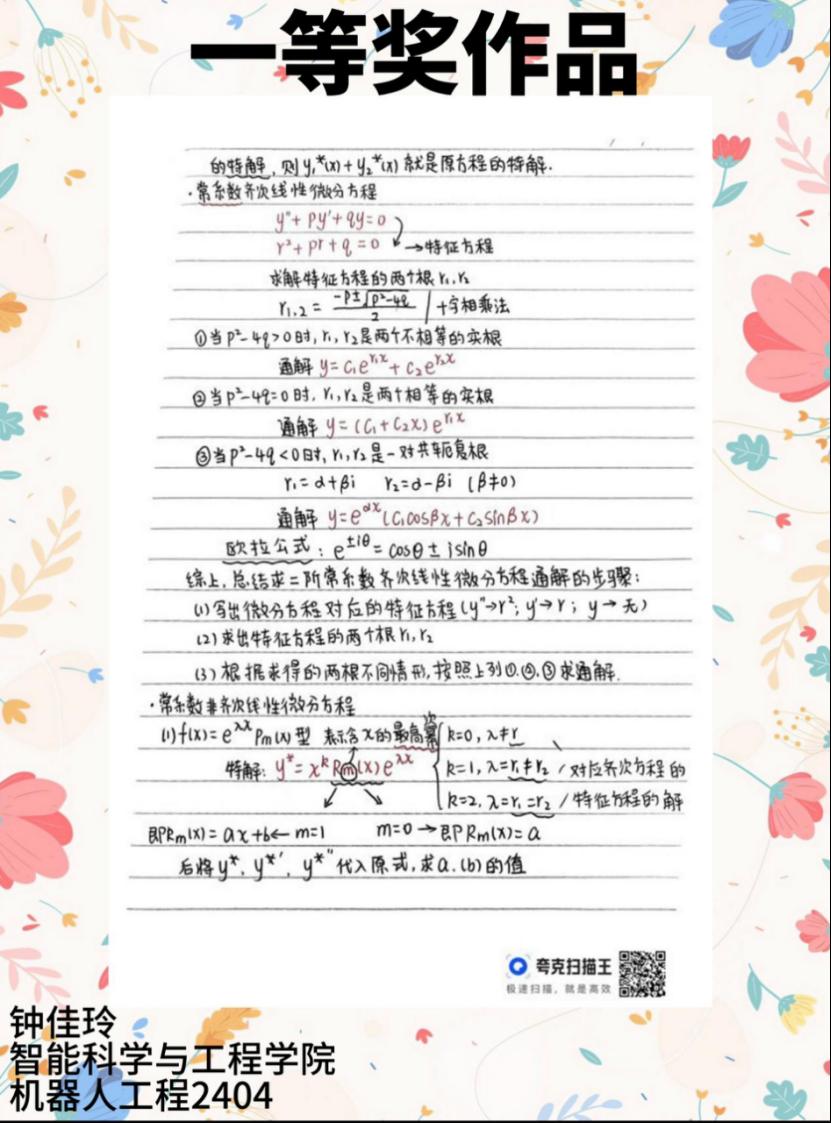 一等奖作品
的特解，则y₁*(x)+y₂*(x)就是原方程的特解.
·常系数齐次线性微分方程
y''+Py'+qy=0
r²+pr+q=0 →特征方程
求解特征方程的两个根r₁,r₂
r₁,₂ = (-P±√(P²-4q))/2 | 十字相乘法
①当P²-4q>0时,r₁,r₂是两个不相等的实根
通解 y=C₁e^(r₁x)+C₂e^(r₂x)
②当P²-4q=0时,r₁,r₂是两个相等的实根
通解 y=(C₁+C₂x)e^(r₁x)
③当P²-4q<0时,r₁,r₂是一对共轭复根
r₁=α+βi r₂=α-βi (β≠0)
通解 y=e^(αx)(C₁cosβx+C₂sinβx)
欧拉公式：e^(±iθ)=cosθ±isinθ
综上,总结求二阶常系数齐次线性微分方程通解的步骤：
(1)写出微分方程对应的特征方程(y''→r²; y'→r; y→无)
(2)求出特征方程的两个根r₁,r₂
(3)根据求得的两根不同情形,按照上列①.②.③求通解.
·常系数非齐次线性微分方程
(1)f(x)=e^(λx)Pm(x)型 表示含x的最高次幂
特解: y*=x^k Rm(x)e^(λx)
k=0, λ≠r
k=1, λ=r₁≠r₂ / 对应齐次方程的
k=2, λ=r₁=r₂ / 特征方程的解
即PRm(x)=ax+b← m=1 m=0→即PRm(x)=a
后将y*, y*', y*''代入原式,求a.(b)的值
夸克扫描王
极速扫描，就是高效
钟佳玲
智能科学与工程学院
机器人工程2404